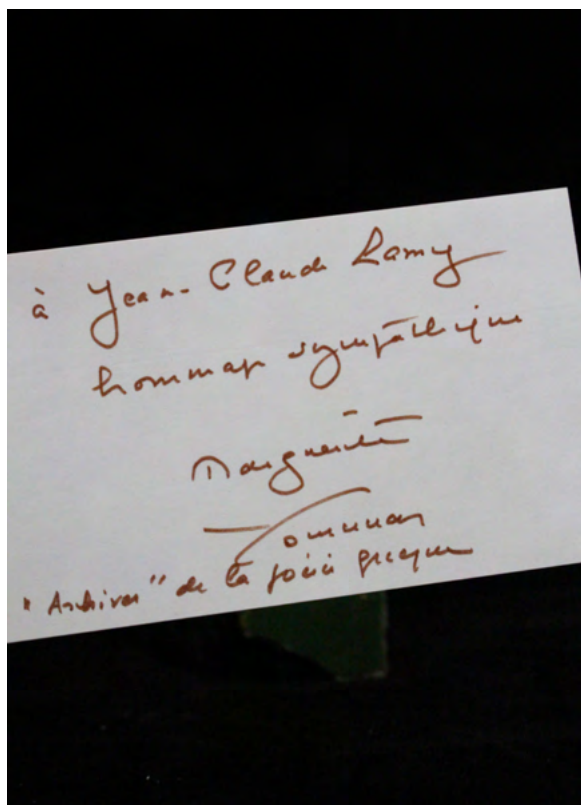 à Jean-Claude Lamy
hommage sympathique
Marguerite
Yourcenar
"Archives" de la poésie grecque